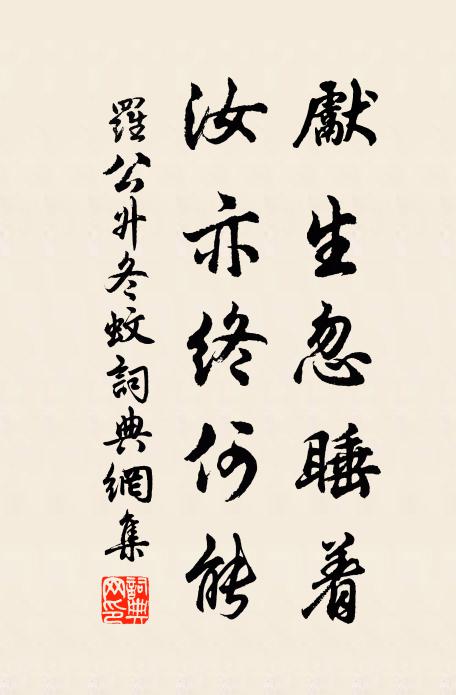 獻生忽睡着
汝亦終何能
羅公升冬蚊詞典網集
詞典網印